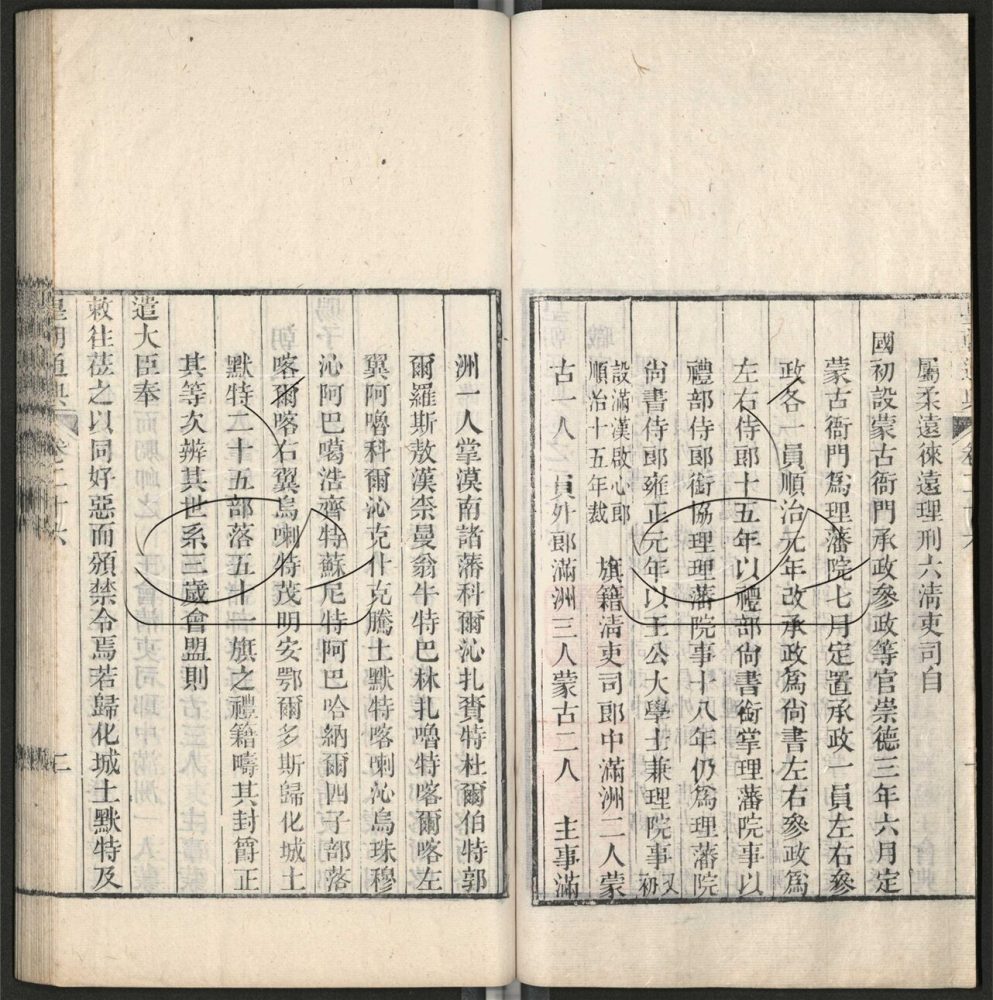 皇朝通典 卷二十六
屬柔遠徠遠理刑六淸吏司自
國初設蒙古衙門承政參政等官崇德三年六月定
蒙古衙門爲理藩院七月定置承政一員左右參
政各一員順治元年改承政爲尙書左右參政爲
左右侍郎十五年以禮部尙書銜掌理藩院事以
禮部侍郎銜協理理藩院事十八年仍爲理藩院
尙書侍郎雍正元年以王公大學士兼理院事又初
設滿漢啟心郎順治十五年裁 旗籍淸吏司郎中滿洲二人蒙
古一人 員外郎滿洲三人蒙古二人 主事滿
洲一人掌漠南諸藩科爾沁扎賚特杜爾伯特郭
爾羅斯敖漢柰曼翁牛特巴林扎嚕特喀爾喀左
翼阿嚕科爾沁克什克騰土默特喀喇沁烏珠穆
沁阿巴噶浩齊特蘇尼特阿巴哈納爾四子部落
喀爾喀右翼烏喇特茂明安鄂爾多斯歸化城土
默特二十五部落五十一旗之禮籍疇其封爵正
其等次辨其世系三歲會盟則
遣大臣奉
敕往莅之以同好惡而頒禁令焉若歸化城土默特及
皇朝通典 卷二十六 二